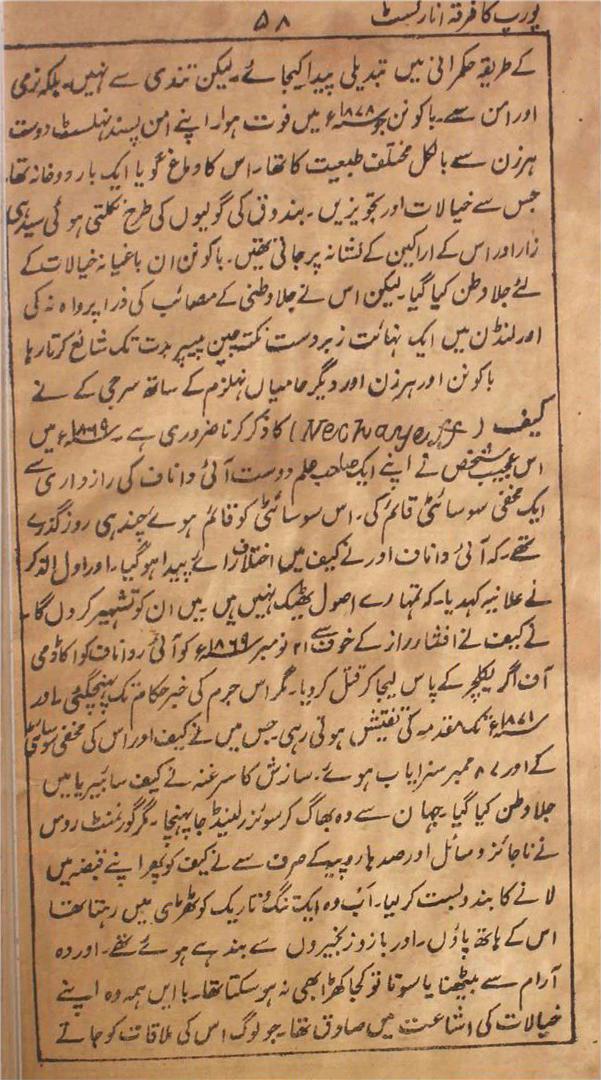 یورپ کا فرقہ انارکسٹ ۵۸
کے طریقہ حکمرانی میں تبدیلی پیدا کیجائے۔ لیکن تندی سے نہیں۔ بلکہ نرمی
اور امن سے۔ باکونن ۱۸۷۸ء میں فوت ہوا۔ اپنے امن پسند نہلسٹ دوست
ہرزن سے بالکل مختلف طبیعت کا تھا۔ اس کا دماغ گویا ایک باردوخانہ تھا۔
جس سے خیالات اور تجویزیں۔ بندوق کی گولیوں کی طرح نکلتی ہوئی سیدہی
زار اور اس کے اراکین کے نشانہ پر جاتی تھیں۔ باکونن ان باغیانہ خیالات کے
لئے جلاوطن کیا گیا۔ لیکن اس نے جلاوطنی کے مصائب کی ذرا پرواہ نہ کی
اور لنڈن میں ایک نہائت زبردست نکتہ چین پیپر مدت تک شائع کرتا رہا
باکونن اور ہرزن اور دیگر حامیاں نہلزم کے ساتھ سرجی کے نے
کیف (Nechayeff) کا ذکر کرنا ضروری ہے۔ ۱۸۶۹ء میں
اس عجیب شخص نے اپنے ایک صاحب علم دوست آئی واناف کی رازداری سے
ایک مخفی سوسائٹی قائم کی۔ اس سوسائٹی کو قائم ہوئے چند ہی روز گذرے
تھے۔ کہ آئی واناف اور نے کیف میں اختلاف رائے پیدا ہوگیا۔ اور اول الذکر
نے علانیہ کہدیا۔ کہ تمہارے اصول ٹھیک نہیں ہیں۔ میں ان کو تشہیر کردوں گا۔
نے کیف نے افشاء راز کے خوف سے ۲۱ نومبر ۱۸۶۹ء کو آئی واناف کو اکاڈمی
آف اگریکلچر کے پاس لیجا کر قتل کردیا۔ مگر اس جرم کی خبر حکام تک پہنچگئی۔ اور
۱۸۷۱ء تک مقدمہ کی تفتیش ہوتی رہی۔ جس میں نے کیف اور اس کی مخفی سوسائٹی
کے اور ۸۷ ممبر سزایاب ہوئے۔ سازش کا سرغنہ نے کیف سائبیریا میں
جلاوطن کیا گیا۔ جہان سے وہ بھاگ کر سوئزرلینڈ جا پہنچا۔ مگر گورنمنٹ روس
نے ناجائز وسائل اور صدہا روپیہ کے صرف سے نے کیف کو پھر اپنے قبضہ میں
لانے کا بندوبست کرلیا۔ اب وہ ایک تنگ و تاریک کوٹھڑی میں رہتا تھا
اس کے ہاتھ پاؤں۔ اور بازو زنجیروں سے بندہے ہوئے تھے۔ اور وہ
آرام سے بیٹھنا یا سونا تو کجا کھڑا بھی نہ ہوسکتا تھا۔ با ایں ہمہ وہ اپنے
خیالات کی اشاعت میں صادق تھا۔ جو لوگ اس کی ملاقات کو جاتے